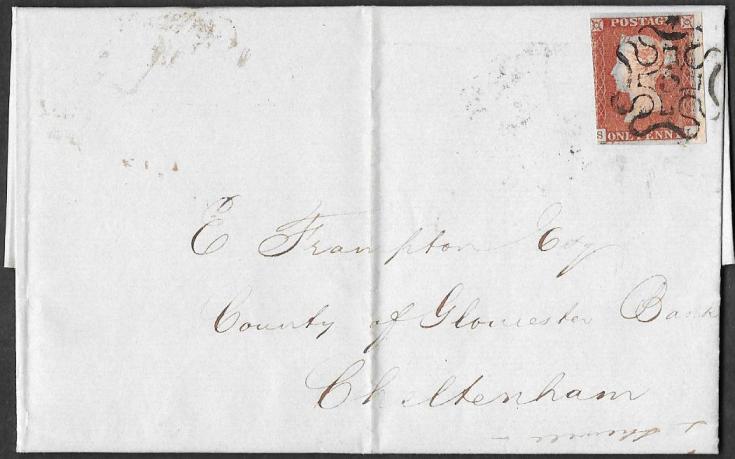 POSTAGE
S
ONE PENNY
E Frampton Esq
County of Gloucester Bank
Cheltenham